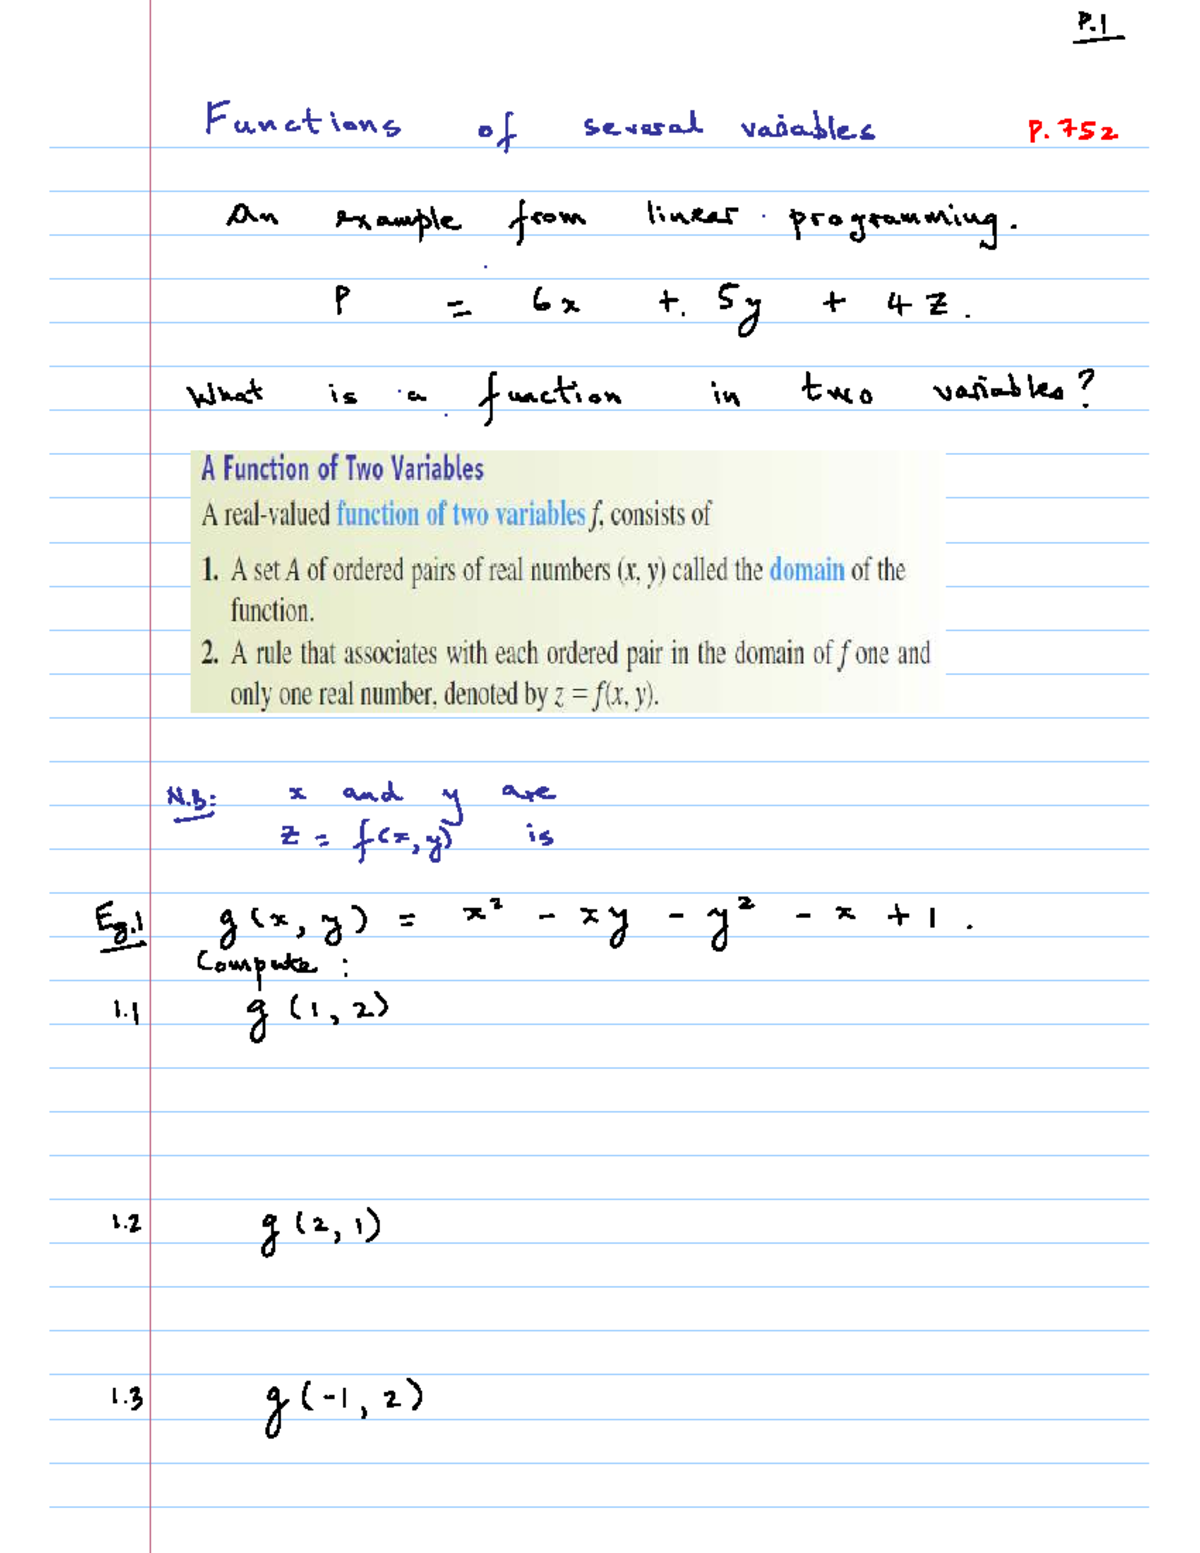 P.1
Functions of several variables P. 752
An example from linear programming.
P = 6x + 5y + 4z.
What is a function in two variables?
A Function of Two Variables
A real-valued function of two variables f, consists of
1. A set A of ordered pairs of real numbers (x, y) called the domain of the
function.
2. A rule that associates with each ordered pair in the domain of f one and
only one real number, denoted by z = f(x, y).
N.B: x and y are
z = f(x, y) is
Eg.1 g(x, y) = x² - xy - y² - x + 1.
Compute:
1.1 g(1, 2)
1.2 g(2, 1)
1.3 g(-1, 2)